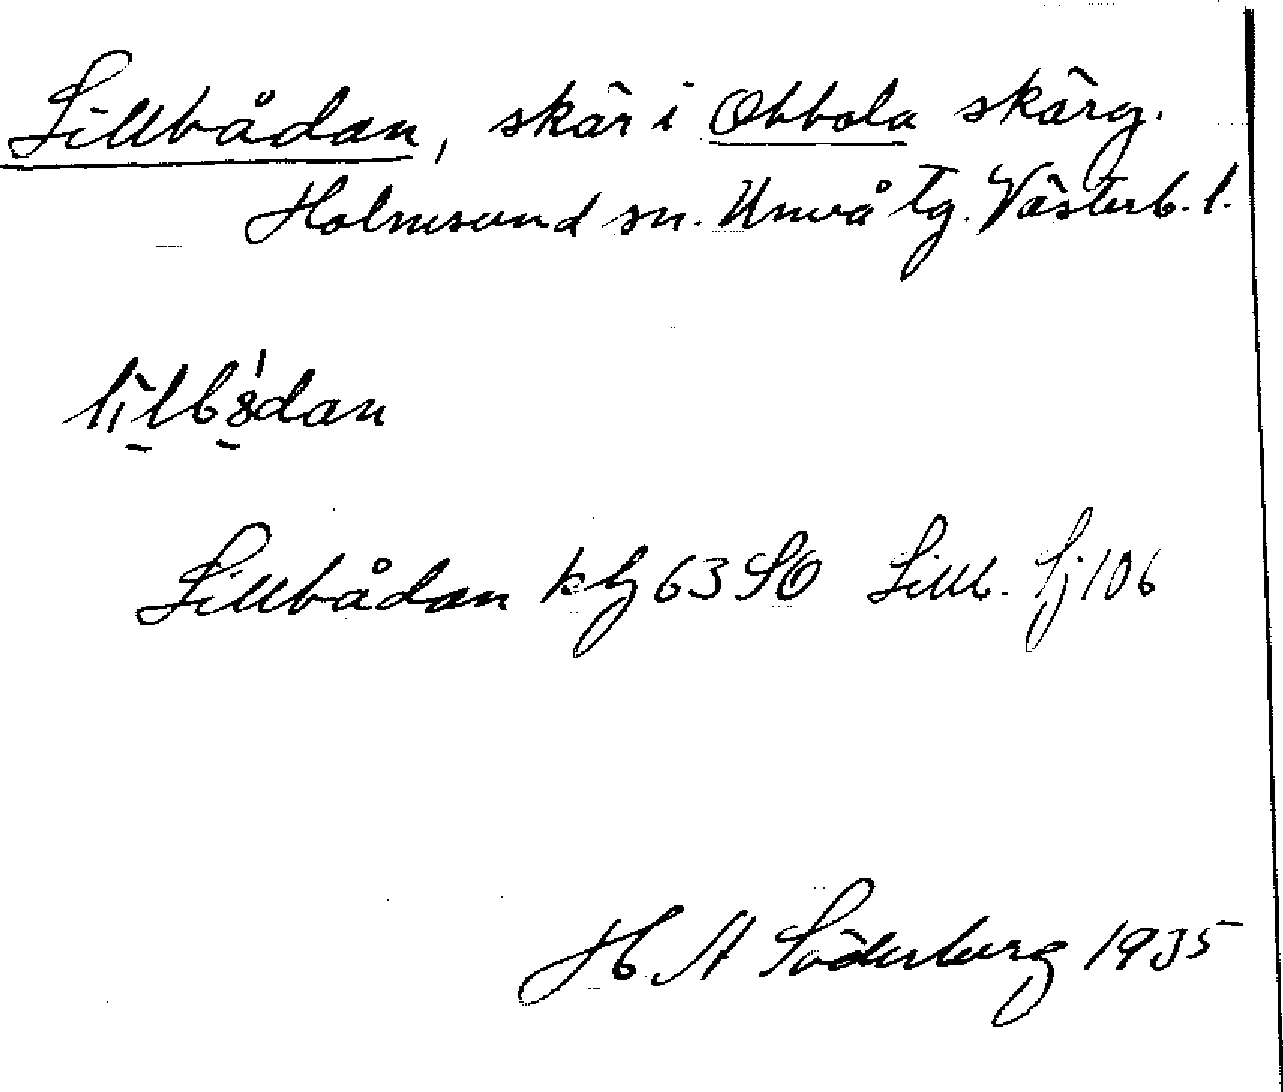 Lillbådan, skär i Obbola skärg.
Holmsund sn. Umeå tg. Västerb. l.
Lillbådan kbl 63 SO Lillb. Sj 106
H A Söderberg 1935